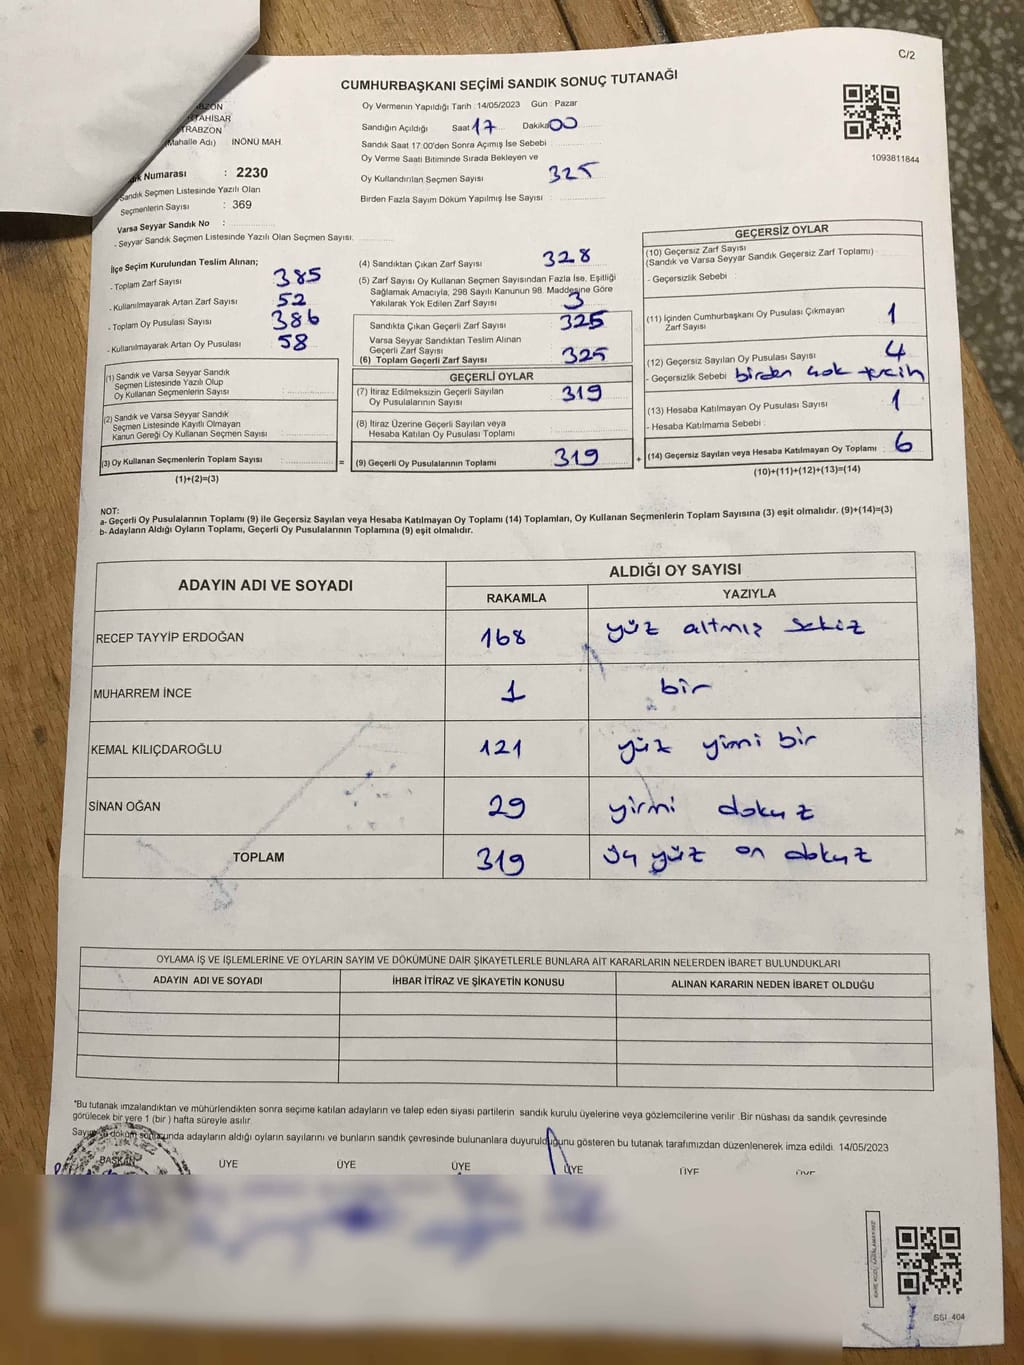 C/2
CUMHURBAŞKANI SEÇİMİ SANDIK SONUÇ TUTANAĞI
TRABZON
(Mahalle Adı) İNÖNÜ MAH.
Numarası : 2230
Sandık Seçmen Listesinde Yazılı Olan
Seçmenlerin Sayısı : 369
Varsa Seyyar Sandık No :
- Seyyar Sandık Seçmen Listesinde Yazılı Olan Seçmen Sayısı:
Oy Vermenin Yapıldığı Tarih : 14/05/2023 Gün : Pazar
Sandığın Açıldığı Saat 17 Dakika 00
Sandık Saat 17:00'den Sonra Açımış İse Sebebi
Oy Verme Saati Bitiminde Sırada Bekleyen ve
Oy Kullandırılan Seçmen Sayısı 325
Birden Fazla Sayım Döküm Yapılmış İse Sayısı :
1093811844
İlçe Seçim Kurulundan Teslim Alınan;
- Toplam Zarf Sayısı 385
- Kullanılmayarak Artan Zarf Sayısı 52
- Toplam Oy Pusulası Sayısı 386
- Kullanılmayarak Artan Oy Pusulası 58
(1) Sandık ve Varsa Seyyar Sandık
Seçmen Listesinde Yazılı Olup
Oy Kullanan Seçmenlerin Sayısı :
(2) Sandık ve Varsa Seyyar Sandık
Seçmen Listesinde Kayıtlı Olmayan
Kanun Gereği Oy Kullanan Seçmen Sayısı :
(3) Oy Kullanan Seçmenlerin Toplam Sayısı :
(1)+(2)=(3)
(4) Sandıktan Çıkan Zarf Sayısı 328
(5) Zarf Sayısı Oy Kullanan Seçmen Sayısından Fazla İse, Eşitliği
Sağlamak Amacıyla, 298 Sayılı Kanunun 98. Maddesine Göre
Yakılarak Yok Edilen Zarf Sayısı 3
Sandıkta Çıkan Geçerli Zarf Sayısı 325
Varsa Seyyar Sandıktan Teslim Alınan
Geçerli Zarf Sayısı
(6) Toplam Geçerli Zarf Sayısı 325
GEÇERLİ OYLAR
(7) İtiraz Edilmeksizin Geçerli Sayılan
Oy Pusulalarının Sayısı 319
(8) İtiraz Üzerine Geçerli Sayılan veya
Hesaba Katılan Oy Pusulası Toplamı
= (9) Geçerli Oy Pusulalarının Toplamı 319
GEÇERSİZ OYLAR
(10) Geçersiz Zarf Sayısı
(Sandık ve Varsa Seyyar Sandık Geçersiz Zarf Toplamı)
- Geçersizlik Sebebi :
(11) İçinden Cumhurbaşkanı Oy Pusulası Çıkmayan
Zarf Sayısı 1
(12) Geçersiz Sayılan Oy Pusulası Sayısı 4
- Geçersizlik Sebebi birden çok tercih
(13) Hesaba Katılmayan Oy Pusulası Sayısı 1
- Hesaba Katılmama Sebebi :
+ (14) Geçersiz Sayılan veya Hesaba Katılmayan Oy Toplamı : 6
(10)+(11)+(12)+(13)=(14)
NOT:
a- Geçerli Oy Pusulalarının Toplamı (9) ile Geçersiz Sayılan veya Hesaba Katılmayan Oy Toplamı (14) Toplamları, Oy Kullanan Seçmenlerin Toplam Sayısına (3) eşit olmalıdır. (9)+(14)=(3)
b- Adayların Aldığı Oyların Toplamı, Geçerli Oy Pusulalarının Toplamına (9) eşit olmalıdır.
ADAYIN ADI VE SOYADI ALDIĞI OY SAYISI
RAKAMLA YAZIYLA
RECEP TAYYİP ERDOĞAN 168 yüz altmış sekiz
MUHARREM İNCE 1 bir
KEMAL KILIÇDAROĞLU 121 yüz yirmi bir
SİNAN OĞAN 29 yirmi dokuz
TOPLAM 319 üç yüz on dokuz
OYLAMA İŞ VE İŞLEMLERİNE VE OYLARIN SAYIM VE DÖKÜMÜNE DAİR ŞİKAYETLERLE BUNLARA AİT KARARLARIN NELERDEN İBARET BULUNDUKLARI
ADAYIN ADI VE SOYADI İHBAR İTİRAZ VE ŞİKAYETİN KONUSU ALINAN KARARIN NEDEN İBARET OLDUĞU
*Bu tutanak imzalandıktan ve mühürlendikten sonra seçime katılan adayların ve talep eden siyasi partilerin sandık kurulu üyelerine veya gözlemcilerine verilir. Bir nüshası da sandık çevresinde
görülecek bir yere 1 (bir) hafta süreyle asılır.
Sayım ve döküm sonucunda adayların aldığı oyların sayılarını ve bunların sandık çevresinde bulunanlara duyurulduğunu gösteren bu tutanak tarafımızdan düzenlenerek imza edildi. 14/05/2023
BAŞKAN ÜYE ÜYE ÜYE ÜYE ÜYE ÜYE
SSİ_404